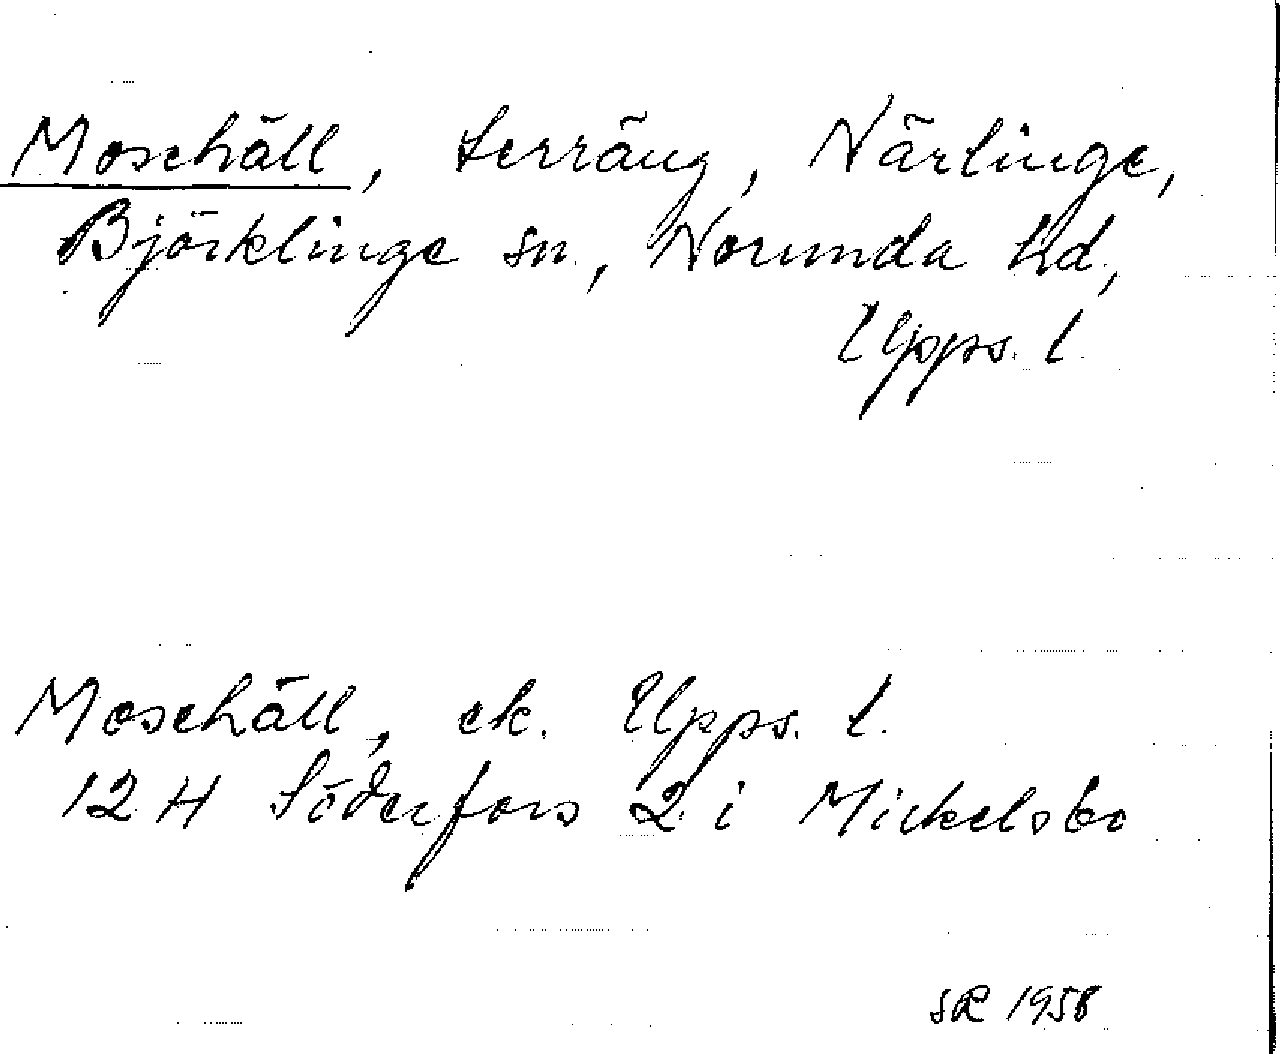 Moschäll, terräng, Närlinge,
Björklinge sn., Norunda hd,
Upps. l.
Moschäll, ek. Upps. l.
12 H Söderfors 2 i Mickelsbo
SR 1958